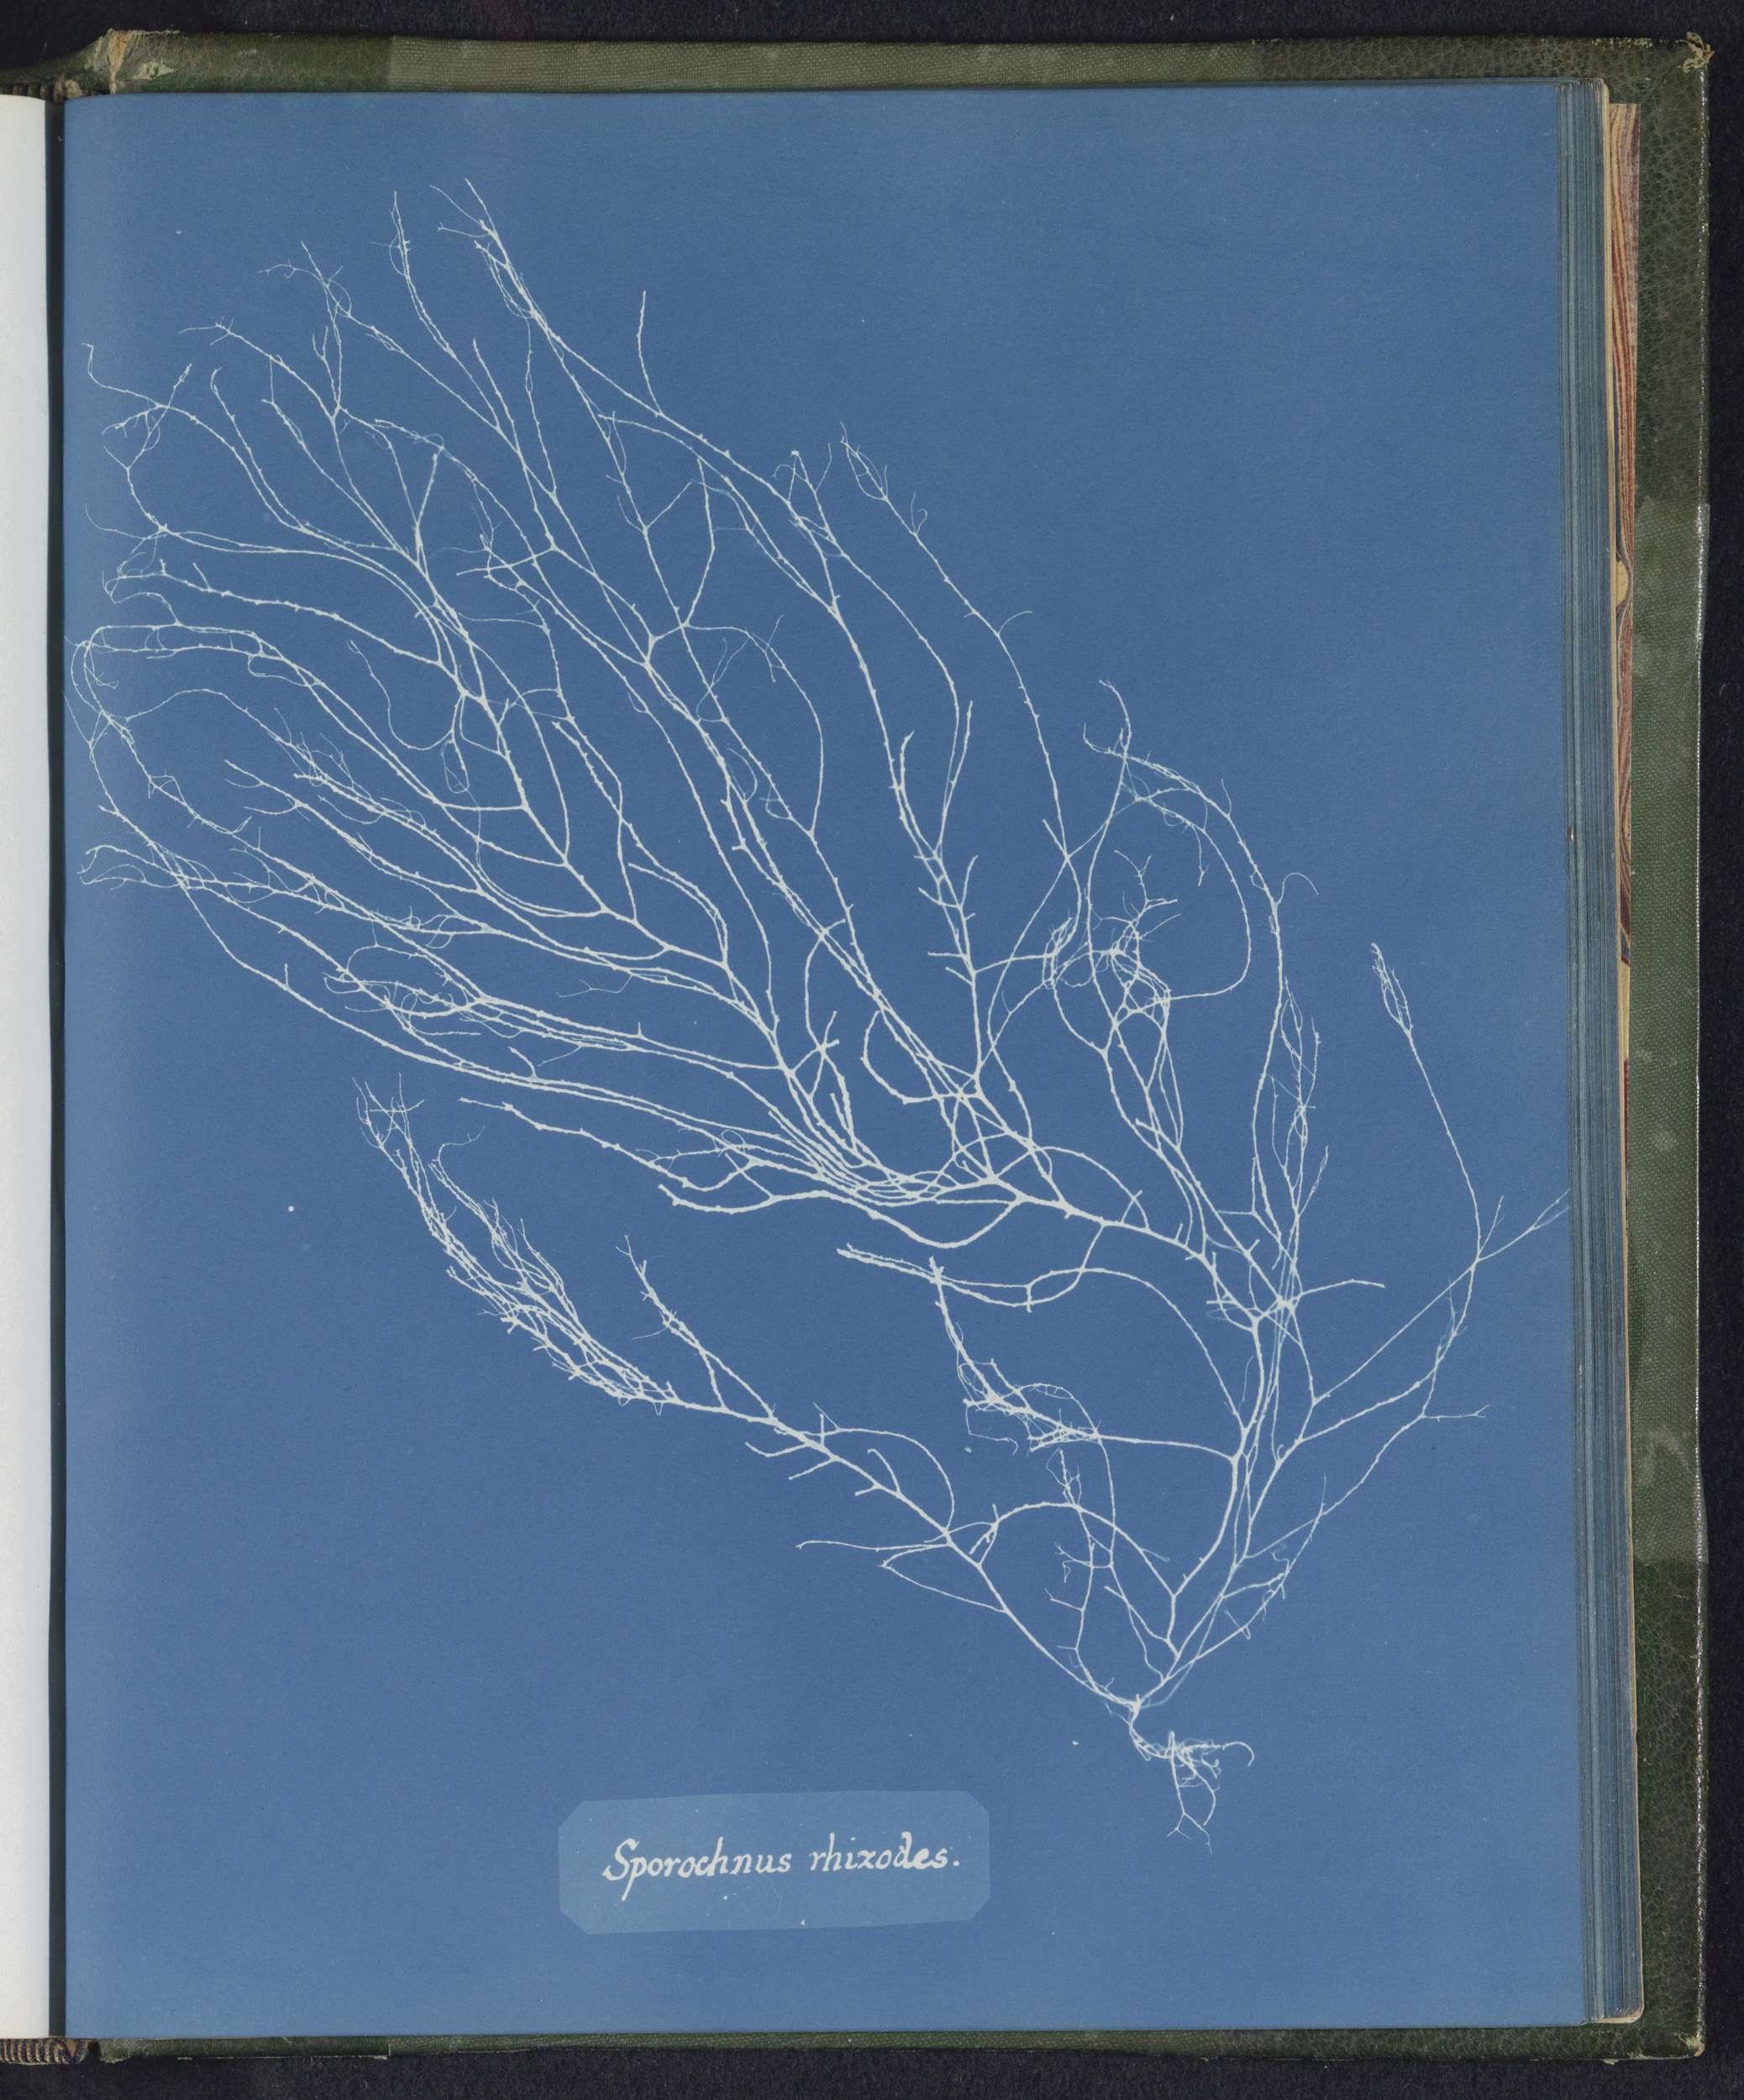 Sporochnus rhizodes.